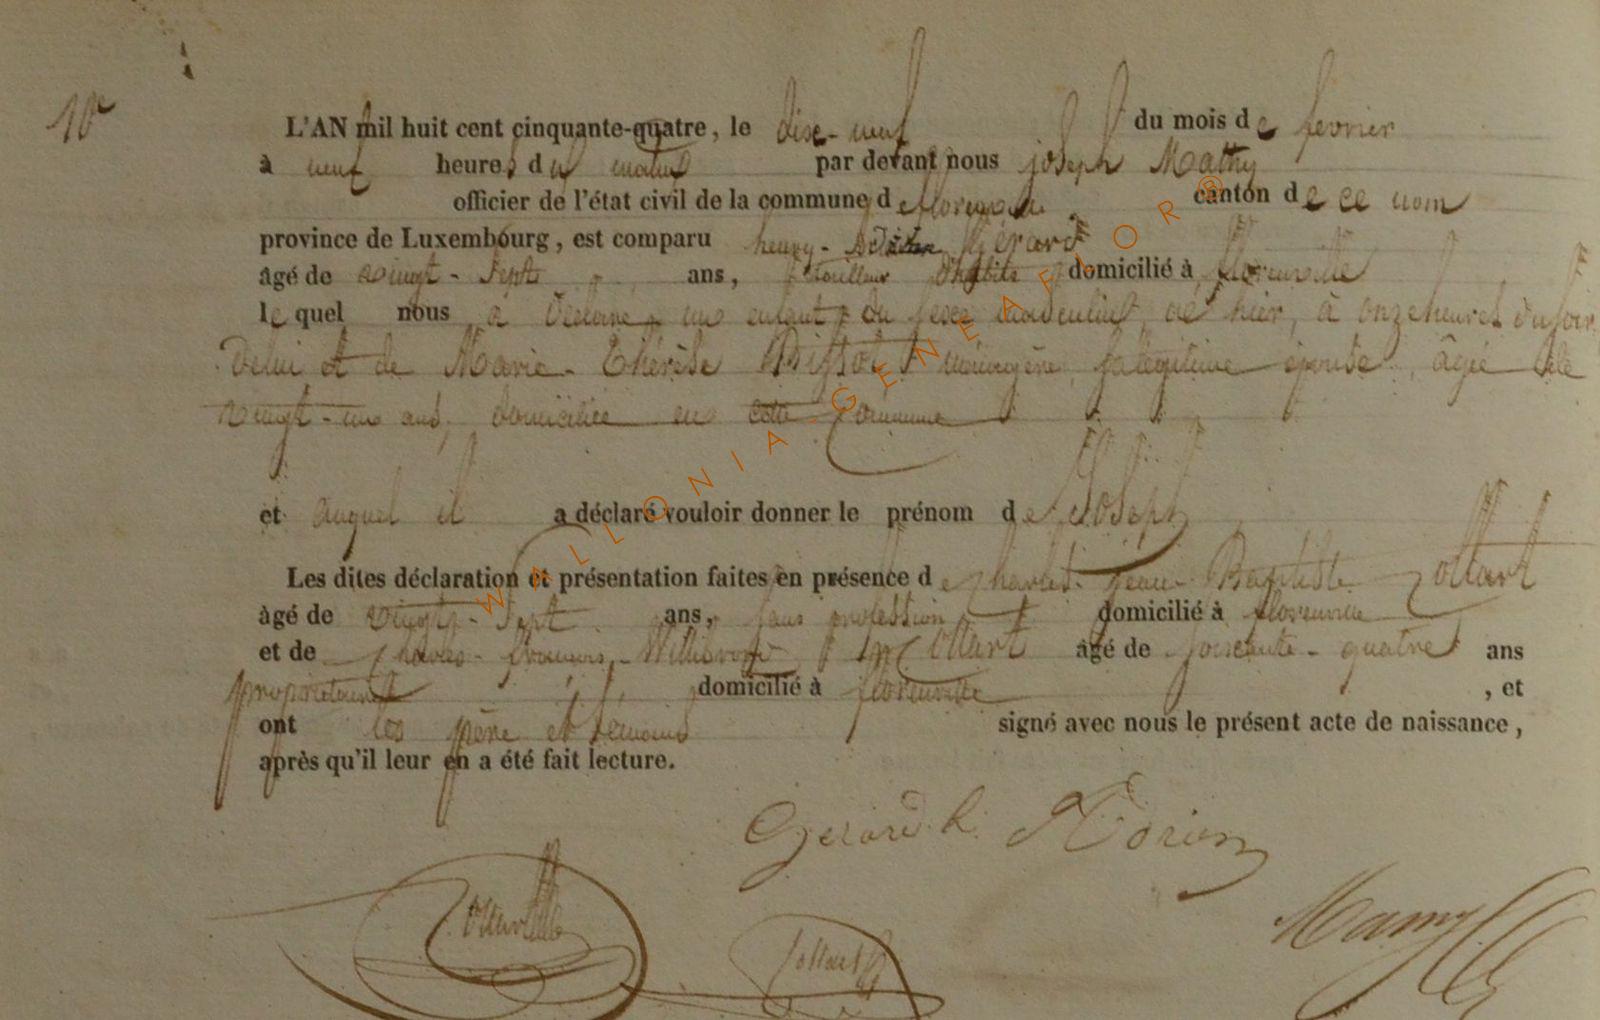 10
L'AN mil huit cent cinquante-quatre, le dixe-neuf du mois de fevrier
à neuf heures du matin par devant nous joseph Mathy
officier de l'état civil de la commune de florenville canton de ce nom
province de Luxembourg, est comparu henry- Gérard
âgé de vingt-sept ans, tailleur d'habits domicilié à florenville
lequel nous a déclaré un enfant du sexe masculin, né hier, à onze heures du soir
De lui et de Marie-Thérèse ménagère, sa légitime épouse, âgée de
vingt-un ans, domiciliée en cette Commune
et auquel il a déclaré vouloir donner le prénom de Joseph
Les dites déclaration et présentation faites en présence de Charles-jean-Baptiste Collart
àgé de vingt-sept ans, sans profession domicilié à florenville
et de Charles-françois-Willibrord Collart âgé de soixante-quatre ans
propriétaire domicilié à florenville, et
ont les père et témoins signé avec nous le présent acte de naissance,
après qu'il leur en a été fait lecture.
Gerard h.
Collart
WALLONIA-GENEAFLOR®